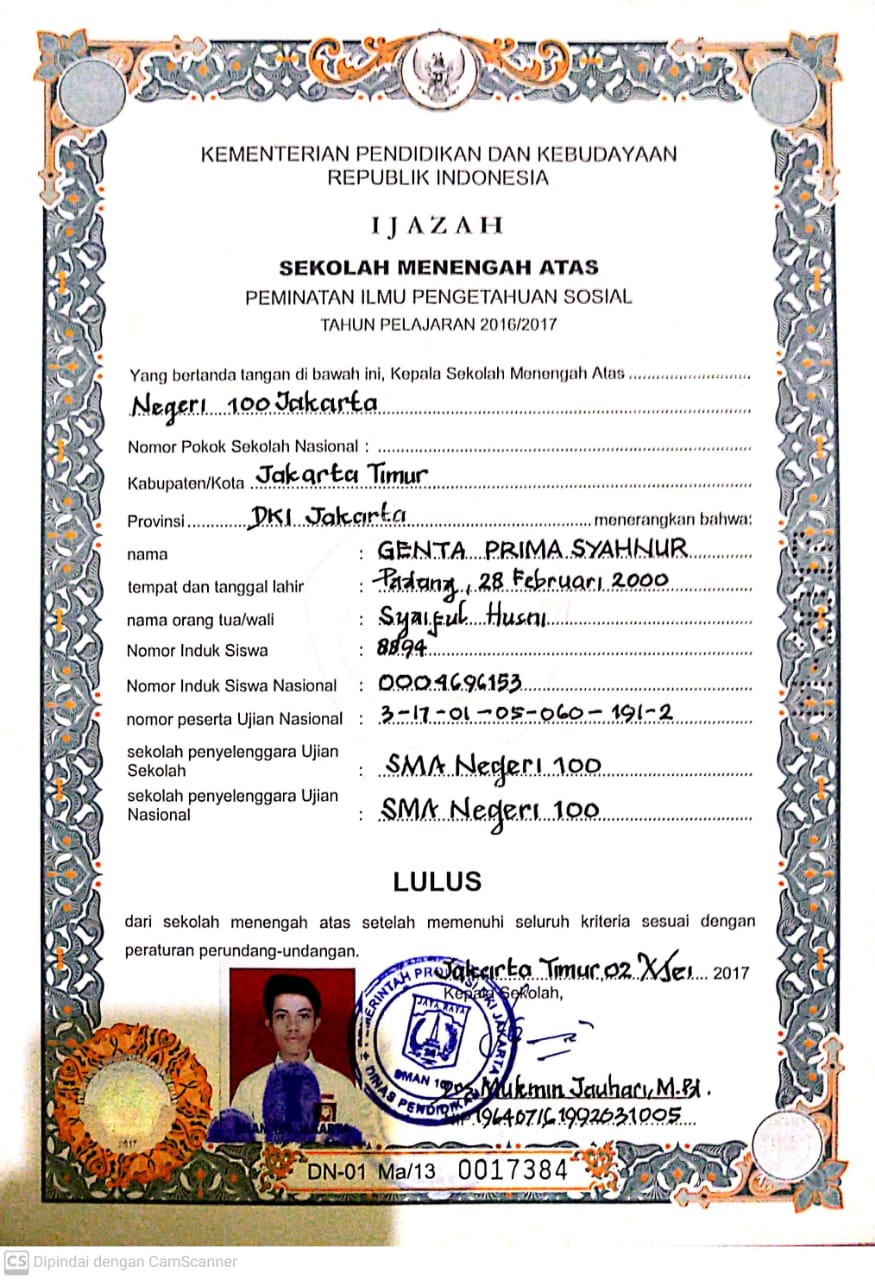 KEMENTERIAN PENDIDIKAN DAN KEBUDAYAAN
REPUBLIK INDONESIA
IJAZAH
SEKOLAH MENENGAH ATAS
PEMINATAN ILMU PENGETAHUAN SOSIAL
TAHUN PELAJARAN 2016/2017
Yang bertanda tangan di bawah ini, Kepala Sekolah Menengah Atas
Negeri 100 Jakarta
Nomor Pokok Sekolah Nasional :
Kabupaten/Kota Jakarta Timur
Provinsi DKI Jakarta menerangkan bahwa:
nama : GENTA PRIMA SYAHNUR
tempat dan tanggal lahir : Padang, 28 Februari 2000
nama orang tua/wali : Syaiful Husni
Nomor Induk Siswa : 8894
Nomor Induk Siswa Nasional : 0004696153
nomor peserta Ujian Nasional : 3-17-01-05-060-191-2
sekolah penyelenggara Ujian
Sekolah : SMA Negeri 100
sekolah penyelenggara Ujian
Nasional : SMA Negeri 100
LULUS
dari sekolah menengah atas setelah memenuhi seluruh kriteria sesuai dengan
peraturan perundang-undangan.
Jakarta Timur, 02 Mei 2017
Kepala Sekolah,
JAYA RAYA
DINAS PENDIDIKAN
Drs Mukmin Jauhari, M.Pd.
2017
DN-01 Ma/13 0017384
CS Dipindai dengan CamScanner